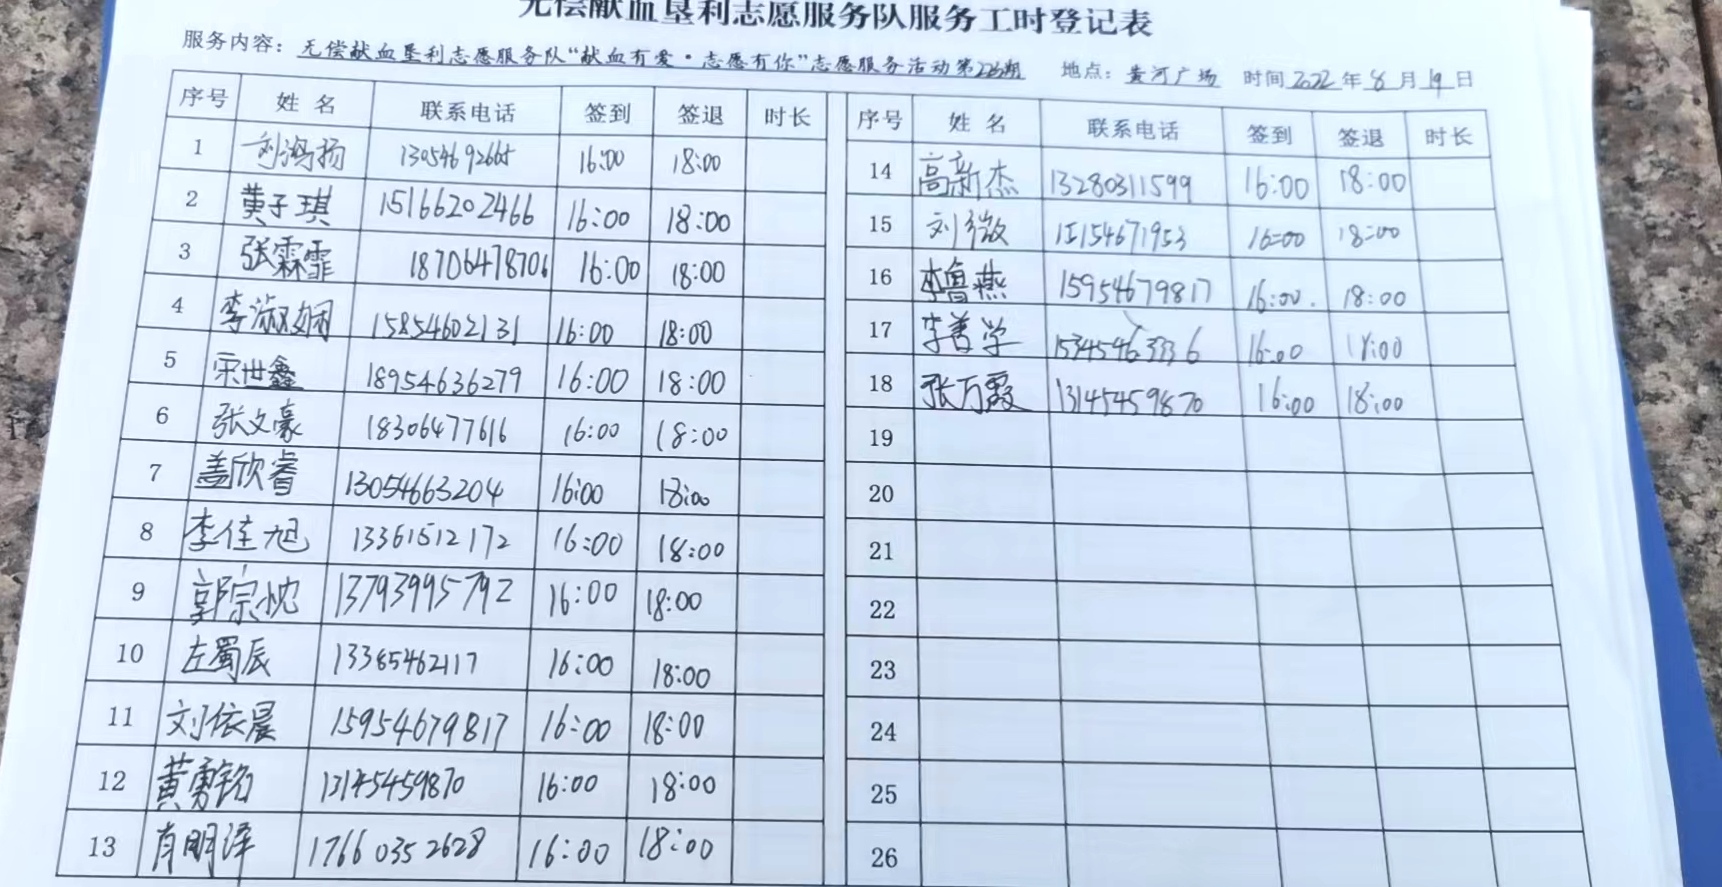 无偿献血垦利志愿服务队服务工时登记表
服务内容：无偿献血垦利志愿服务队“献血有爱·志愿有你”志愿服务活动第226期 地点：黄河广场 时间2022年8月19日
序号 姓名 联系电话 签到 签退 时长 序号 姓名 联系电话 签到 签退 时长
1 刘鸿扬 13054692665 16:00 18:00
2 黄子琪 15166202466 16:00 18:00
3 张霖霏 18706478706 16:00 18:00
4 李淑娴 15854602131 16:00 18:00
5 宋世鑫 18954636279 16:00 18:00
6 张文豪 18306477616 16:00 18:00
7 盖欣睿 13054663204 16:00 18:00
8 李佳旭 13361512172 16:00 18:00
9 郭宗忱 13793995792 16:00 18:00
10 左蜀辰 13385462117 16:00 18:00
11 刘依晨 15954679817 16:00 18:00
12 黄勇铭 13145459870 16:00 18:00
13 肖明泽 17660352628 16:00 18:00
14 高新杰 13280311599 16:00 18:00
15 刘微 15154671953 16:00 18:00
16 李鲁燕 15954679817 16:00. 18:00
17 李善学 15345463336 16:00 18:00
18 张万霞 13145459870 16:00 18:00
19
20
21
22
23
24
25
26